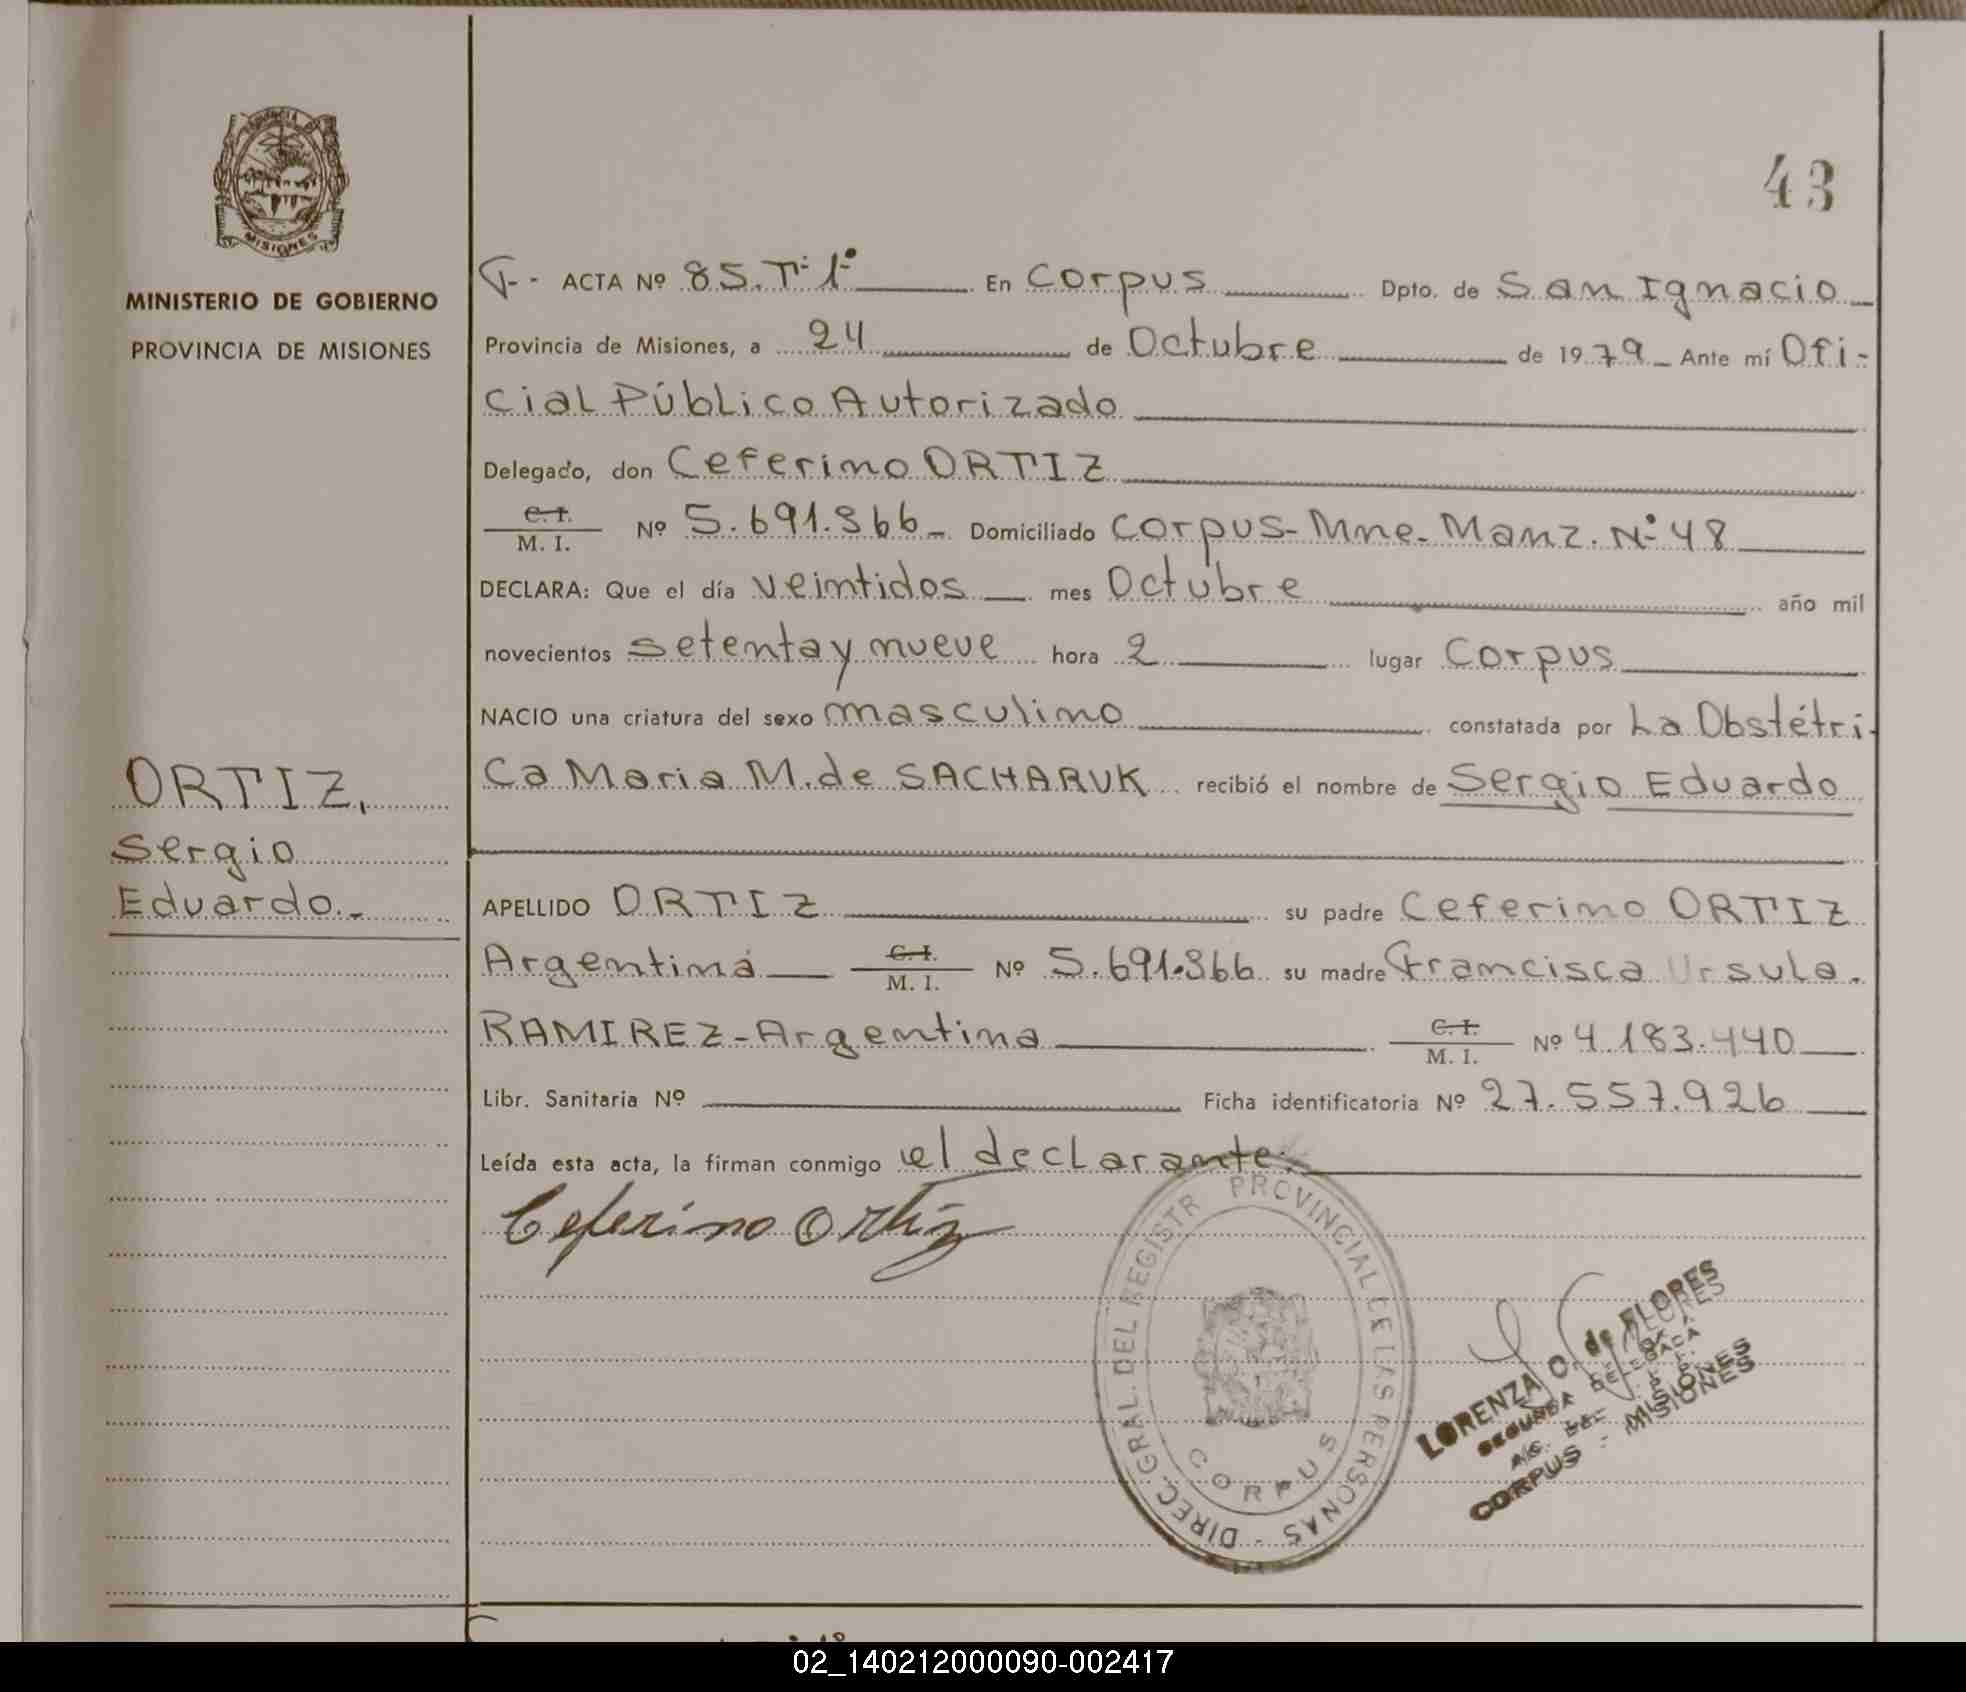 43
MINISTERIO DE GOBIERNO
PROVINCIA DE MISIONES
ORTIZ,
Sergio
Eduardo.-
ACTA Nº 85. Tº 1º En Corpus Dpto. de San Ignacio
Provincia de Misiones, a 24 de Octubre de 1979 Ante mí Ofi-
cial Público Autorizado
Delegado, don Ceferino ORTIZ
C. I. M. I. Nº 5.691.366 Domiciliado Corpus-Mnes. Manz. Nº 48
DECLARA: Que el día veintidos mes Octubre año mil
novecientos setenta y nueve hora 2 lugar Corpus
NACIO una criatura del sexo masculino constatada por La Obstétri-
ca Maria M. de SACHARUK recibió el nombre de Sergio Eduardo
APELLIDO ORTIZ su padre Ceferino ORTIZ
Argentina C. I. M. I. Nº 5.691.366 su madre Francisca Ursula
RAMIREZ-Argentina C. I. M. I. Nº 4.183.440
Libr. Sanitaria Nº Ficha identificatoria Nº 27.557.926
Leída esta acta, la firman conmigo el declarante.
Ceferino Ortiz
DIREC. GRAL. DEL REGISTR PROVINCIAL DE LAS PERSONAS
CORPUS
LORENZA O. de FLORES
SEGUNDA DELEGADA
CORPUS - MISIONES
02_140212000090-002417